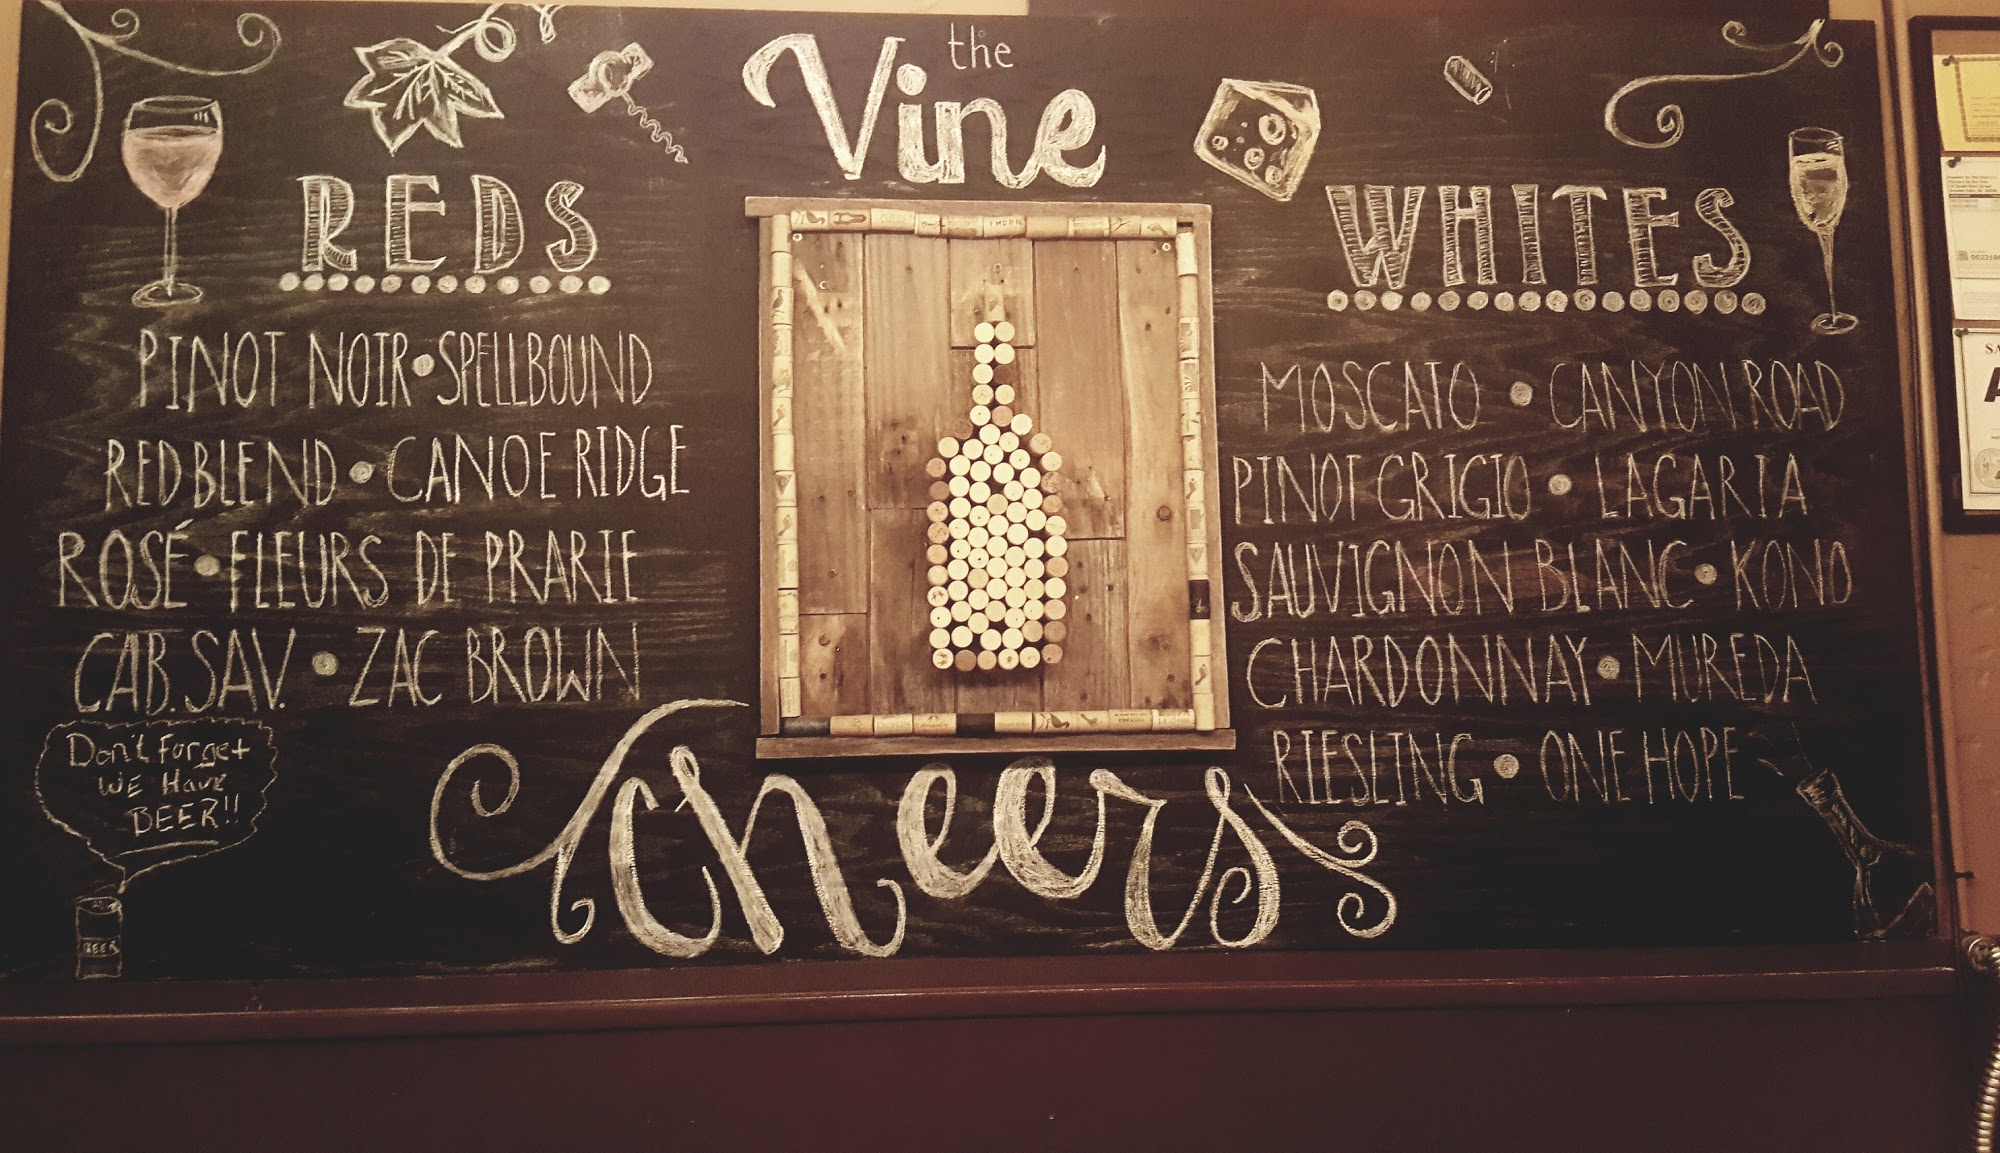 the
Vine
REDS
PINOT NOIR • SPELLBOUND
RED BLEND • CANOE RIDGE
ROSÉ • FLEURS DE PRARIE
CAB. SAV. • ZAC BROWN
Don't Forget
WE Have
BEER!!
BEER
Cheers
WHITES
MOSCATO • CANYON ROAD
PINOT GRIGIO • LAGARIA
SAUVIGNON BLANC • KONO
CHARDONNAY • MUREDA
RIESLING • ONE HOPE